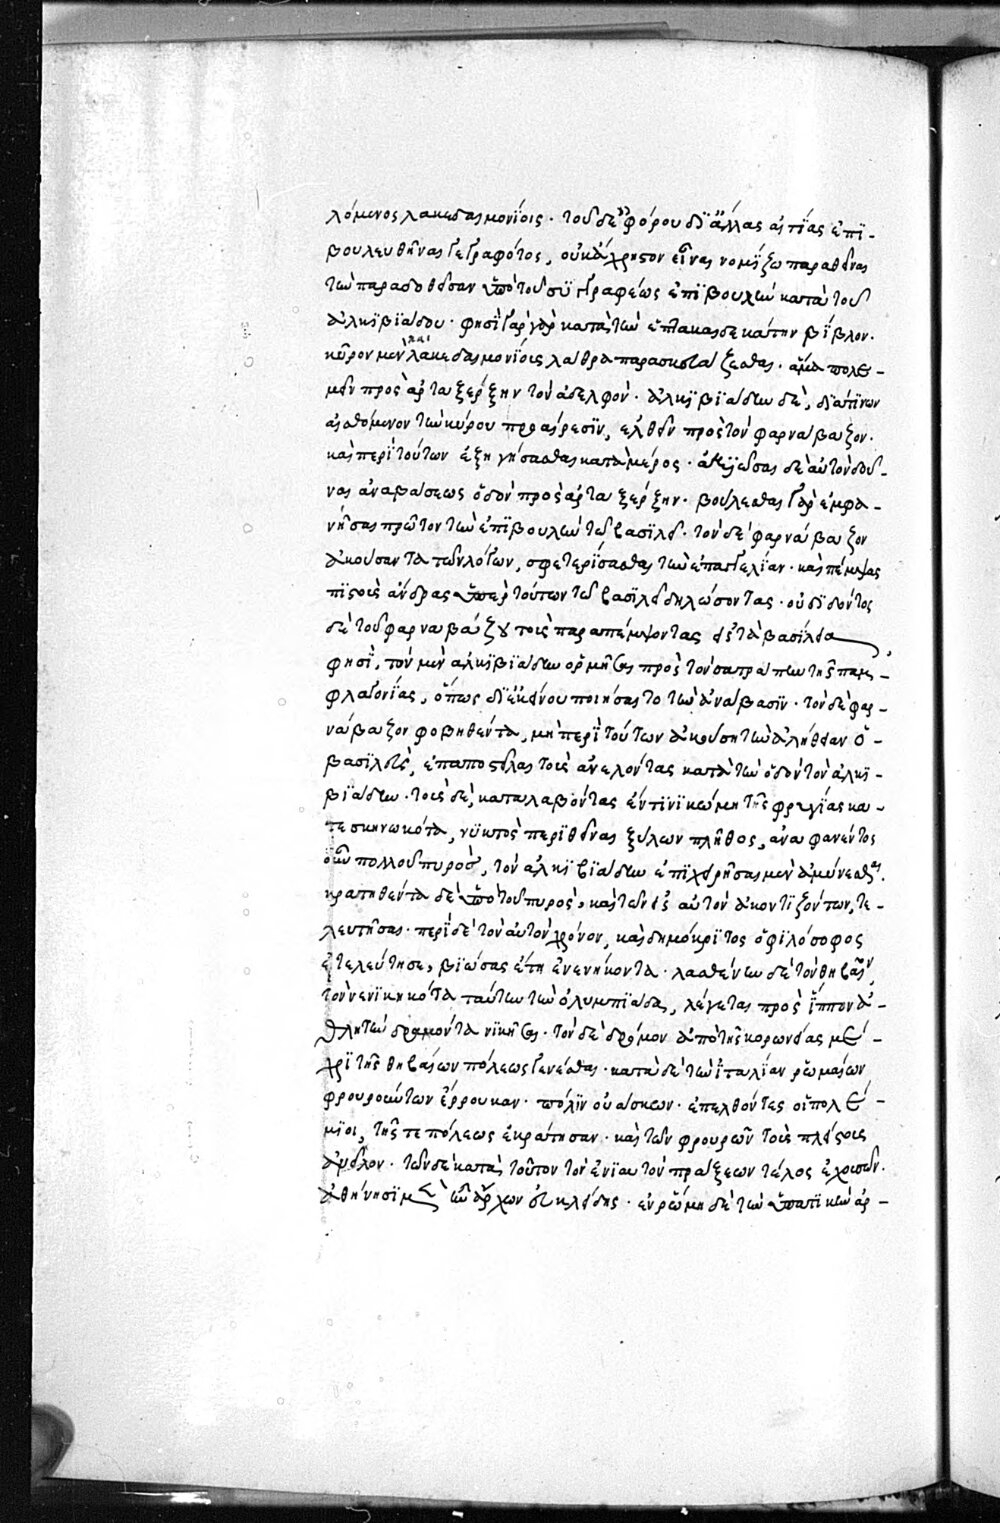 λόμενος λακεδαιμονίοις. τοῦ δὲ ἐφόρου δι' ἄλλας αἰτίας ἐπι-
βουλευθῆναι γεγραφότος, οὐκ ἄχρηστον εἶναι νομίζω παραθεῖναι
τὴν παραδοθεῖσαν ὑπὸ τοῦ συγγραφέως ἐπιβουλὴν κατὰ τοῦ
ἀλκιβιάδου. φησὶ γὰρ κατὰ τὴν ἑπτακαιδεκάτην βίβλον.
κῦρον μὲν καὶ λακεδαιμονίους λάθρα παρασκευάζεσθαι. ἅμα πολε-
μεῖν πρὸς ἀρταξέρξην τὸν ἀδελφόν. ἀλκιβιάδην δὲ, διά τινων
αἰσθόμενον τὴν κύρου προαίρεσιν, ἐλθεῖν πρὸς τὸν φαρνάβαζον.
καὶ περὶ τούτων ἐξηγήσασθαι κατὰ μέρος. ἀξιῶσαι δὲ αὐτὸν δοῦ-
ναι ἀναβάσεως ὁδὸν πρὸς ἀρταξέρξην. βούλεσθαι γὰρ ἐμφα-
νῆσαι πρῶτον τὴν ἐπιβουλὴν τῷ βασιλεῖ. τὸν δὲ φαρνάβαζον
ἀκούσαντα τῶν λόγων, σφετερίσασθαι τὴν ἐπαγγελίαν. καὶ πέμψαι
πιστοὺς ἄνδρας ὑπὲρ τούτων τῷ βασιλεῖ δηλώσοντας. οὐ διδόντος
δὲ τοῦ φαρναβάζου τοὺς παραπέμψοντας εἰς τὰ βασίλεια,
φησὶ, τὸν μὲν ἀλκιβιάδην ὁρμῆσαι πρὸς τὸν σατράπην τῆς παμ-
φλαγονίας, ὅπως δι' ἐκείνου ποιήσαιτο τὴν ἀνάβασιν. τὸν δὲ φαρ-
νάβαζον φοβηθέντα, μὴ περὶ τούτων ἀκούσῃ τὴν ἀλήθειαν ὁ
βασιλεὺς, ἐπαποστεῖλαι τοὺς ἀνελόντας κατὰ τὴν ὁδὸν τὸν ἀλκι-
βιάδην. τοὺς δὲ, καταλαβόντας ἔν τινι κώμῃ τῆς φρυγίας κα-
τεσκηνωκότα, νυκτὸς περιθεῖναι ξύλων πλῆθος, ἀναφανέντος
οὖν πολλοῦ πυρὸς, τὸν ἀλκιβιάδην ἐπιχειρῆσαι μὲν ἀμύνεσθαι.
κρατηθέντα δὲ ὑπὸ τοῦ πυρὸς, καὶ τῶν εἰς αὐτὸν ἀκοντιζόντων, τε-
λευτῆσαι. περὶ δὲ τὸν αὐτὸν χρόνον, καὶ δημόκριτος ὁ φιλόσοφος
ἐτελεύτησε, βιώσας ἔτη ἐνενήκοντα. λασθένην δὲ τὸν θηβαῖον,
τὸν νενικηκότα ταύτην τὴν ὀλυμπιάδα, λέγεται πρὸς ἵππον ἀ-
θλητὴν δραμόντα νικῆσαι. τὸν δὲ δρόμον ἀπὸ τῆς κορωνείας μέ-
χρι τῆς θηβαίων πόλεως γενέσθαι. κατὰ δὲ τὴν ἰταλίαν ῥωμαίων
φρουρούντων ἔρρουκαν. πόλιν οὐάσκων. ἐπελθόντες οἱ πολέ-
μιοι, τῆς τε πόλεως ἐκράτησαν. καὶ τῶν φρουρῶν τοὺς πλείστους
ἀνεῖλον. τῶν δὲ κατὰ τοῦτον τὸν ἐνιαυτὸν πράξεων τέλος ἐχουσῶν.
ἀθήνησι μὲν ἦν ἄρχων εὐκλείδης. ἐν ῥώμῃ δὲ τὴν ὑπατικὴν ἀρ-